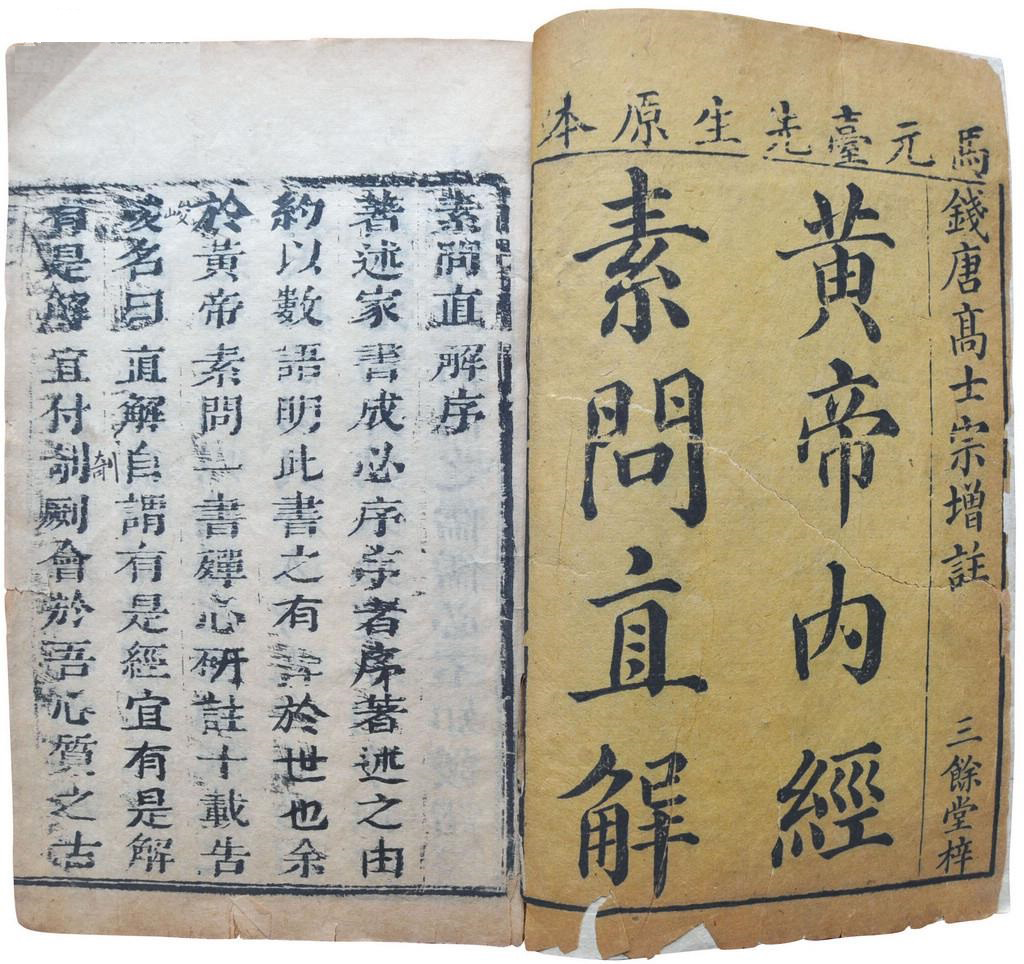 馬元臺先生原本
錢唐高士宗增註
三餘堂梓
黃帝內經
素問直解
素問直解序
著述家書成必序序者序著述之由
約以數語明此書之有 於世也余
於黃帝素問一書殫心研註十載告
峻
名曰直解自謂有是經宜有是解
剞
有是解宜付剞劂會於吾心質之古